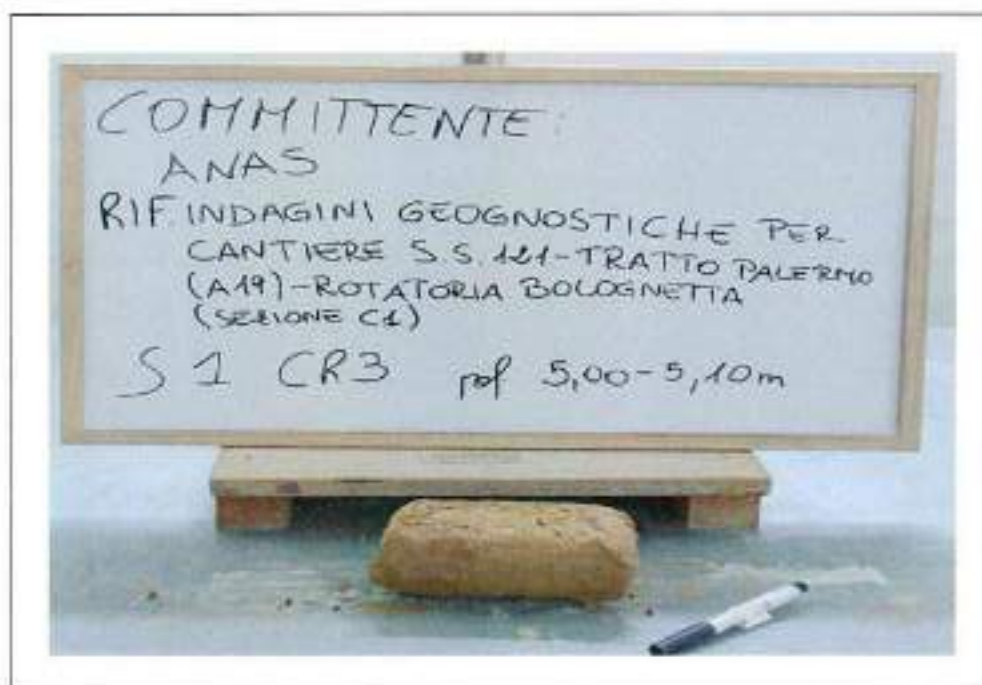 COMMITTENTE:
ANAS
RIF. INDAGINI GEOGNOSTICHE PER
CANTIERE S.S. 121-TRATTO PALERMO
(A19)-ROTATORIA BOLOGNETTA
(SEZIONE C1)
S 1 CR3 prof 5,00-5,10m